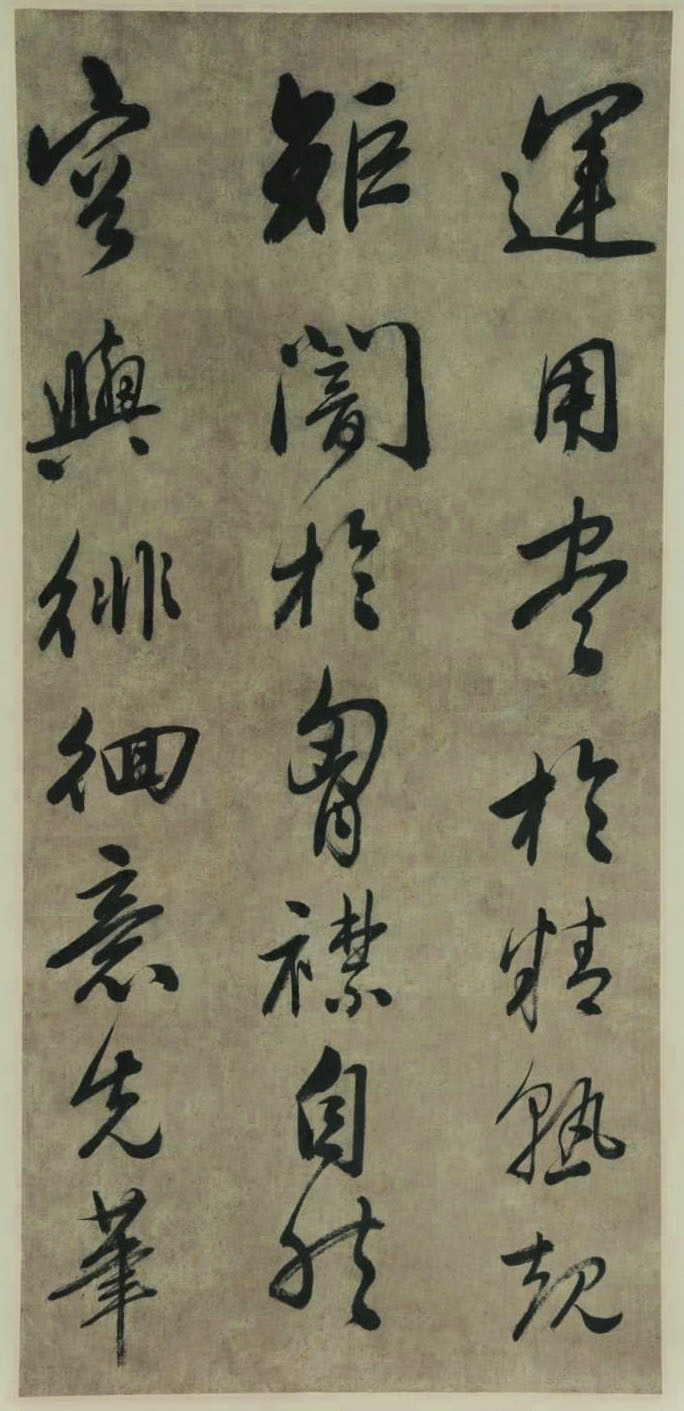 運用尽於精熟規
矩闇於胷襟自然
容與徘徊意先筆